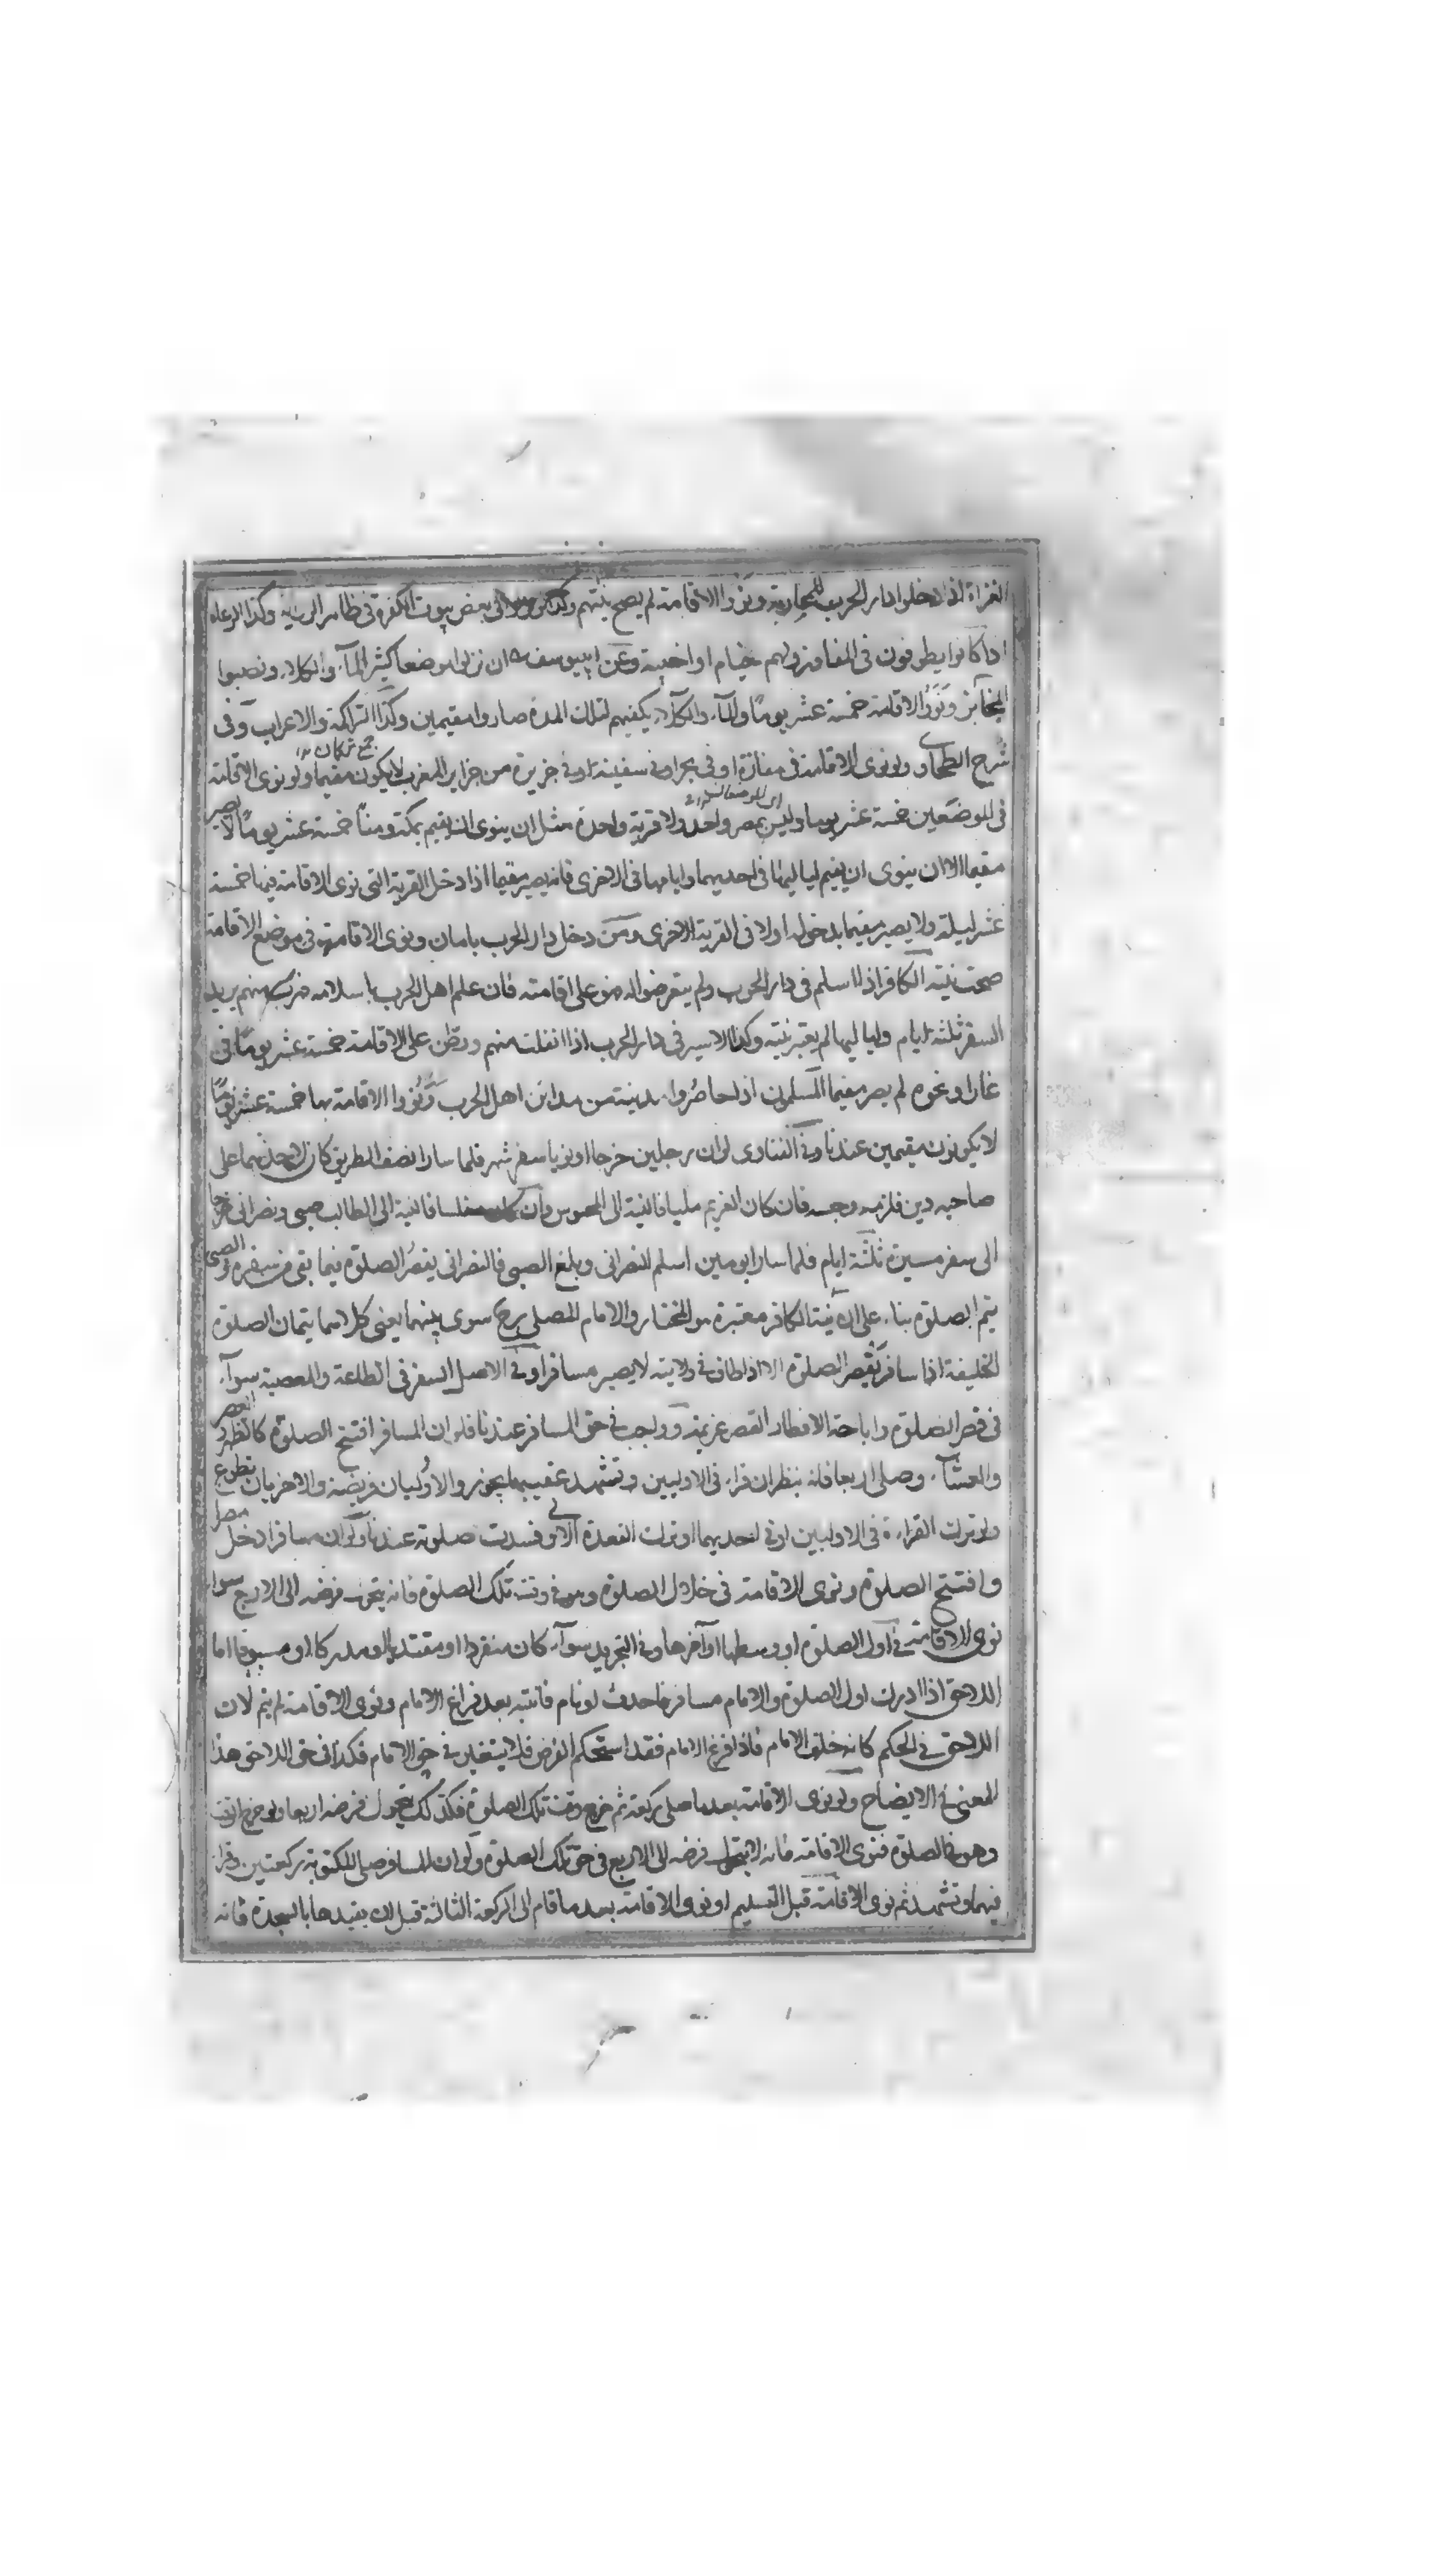 الغزاة اذا دخلوا دار الحرب للمحاربة ونووا الاقامة لم يصح نيتهم وكذا في بعض بيوت الكفرة في ظاهر الرواية وكذا الرعاة
اذا كانوا يطوفون في المفاوز ولهم خيام او اخبية وعن ابييوسف ان نزلوا موضعا كثير المآء والكلاء ونصبوا
المخآبز ونووا الاقامة خمسة عشر يوما والمآء والكلاء يكفيهم لتلك المدة صاروا مقيمين وكذا التراكمة والاعراب وفى
جمع تركمان
شرح الطحاوى ولو نوى الاقامة في مفازة او في بحر او في سفينة او في جزيرة من جزاير المغرب لا يكون مقيما ولو نوى الاقامة
في الموضعين خمسة عشر يوما وليس بمصر واحد ولا قرية واحدة مثل ان ينوى ان يقيم بمكة ومنا خمسة عشر يوما لا يصير
مقيما الا ان ينوى ان يقيم لياليها في احديهما وايامها في الاخرى فانه يصير مقيما اذا دخل القرية التى نوى الاقامة فيها خمسة
عشر ليلة ولا يصير مقيما بدخوله اولا في القرية الاخرى ومن دخل دار الحرب بامان ونوى الاقامة في موضع الاقامة
صحت نيته الكافر اذا اسلم في دار الحرب ولم يتعرضوا له هو على اقامته فان علم اهل الحرب باسلامه فهرب منهم يريد
السفر ثلثة ايام ولياليها لم يعتبر نيته وكذا الاسير في دار الحرب اذا انفلت منهم ووطن على الاقامة خمسة عشر يوما في
غار او نحوه لم يصر مقيما المسلمون اذا حاصروا مدينة من مداين اهل الحرب ونووا الاقامة بها خمسة عشر يوما
لا يكونون مقيمين عندنا وفي الفتاوى لو ان رجلين خرجا ونويا سفر شهر فلما سارا نصف الطريق كان لاحدهما على
صاحبه دين فلزمه وحبسه فان كان الغريم مليا فالنية الى المحبوس وان كان مفلسا فالنية الى الطالب صبى ونصرانى خرجا
الى سفر مسيرة ثلثة ايام فلما سارا يومين اسلم النصرانى وبلغ الصبى فالنصرانى يقصر الصلوة فيما بقى من سفره والصبى
يتم الصلوة بناء على ان نية الكافر معتبرة هو المختار والامام المصلى رح سوى بينهما يعنى كلاهما يتمان الصلوة
الخليفة اذا سافر يقصر الصلوة الا اذا طاف في ولايته لا يصير مسافرا وفي الاصل السفر في الطاعة والمعصية سوآء
في قصر الصلوة واباحة الافطار القصر عزيمة وواجب في حق المسافر عندنا فلو ان المسافر افتتح الصلوة كالظهر والعصر
والعشآء وصلى اربعا فانه ينظر ان قراء في الاوليين وتشهد عقيبهما يجوز والاوليان فريضة والاخريان تطوع
ولو ترك القراءة في الاوليين او في احديهما او ترك القعدة الاولى فسدت صلوته عندنا ولو ان مسافرا دخل مصرا
وافتتح الصلوة ونوى الاقامة في خلال الصلوة وهو في وقت تلك الصلوة فانه يتحول فرضه الى الاربع سواء
نوى الاقامة في اول الصلوة او وسطها او آخرها وفي التجريد سوآء كان منفردا او مقتديا او مدركا او مسبوقا اما
اللاحق اذا ادرك اول الصلوة والامام مسافر فاحدث او نام فانتبه بعد فراغ الامام ونوى الاقامة لم يتم لان
اللاحق في الحكم كانه خلف الامام فاذا فرغ الامام فقد استحكم الفرض فلا يتغير في حق الامام فكذا في حق اللاحق هذا
المعنى في الايضاح ولو نوى الاقامة بعد ما صلى ركعة ثم خرج وقت تلك الصلوة فكذلك يتحول فرضه اربعا ولو خرج الوقت
وهو في الصلوة فنوى الاقامة فانه لا يتحول فرضه الى الاربع في حق تلك الصلوة ولو ان المسافر صلى المكتوبة ركعتين وقرا
فيهما وتشهد ثم نوى الاقامة قبل التسليم او نوى الاقامة بعد ما قام الى الركعة الثالثة قبل ان يقيدها بالسجدة فانه